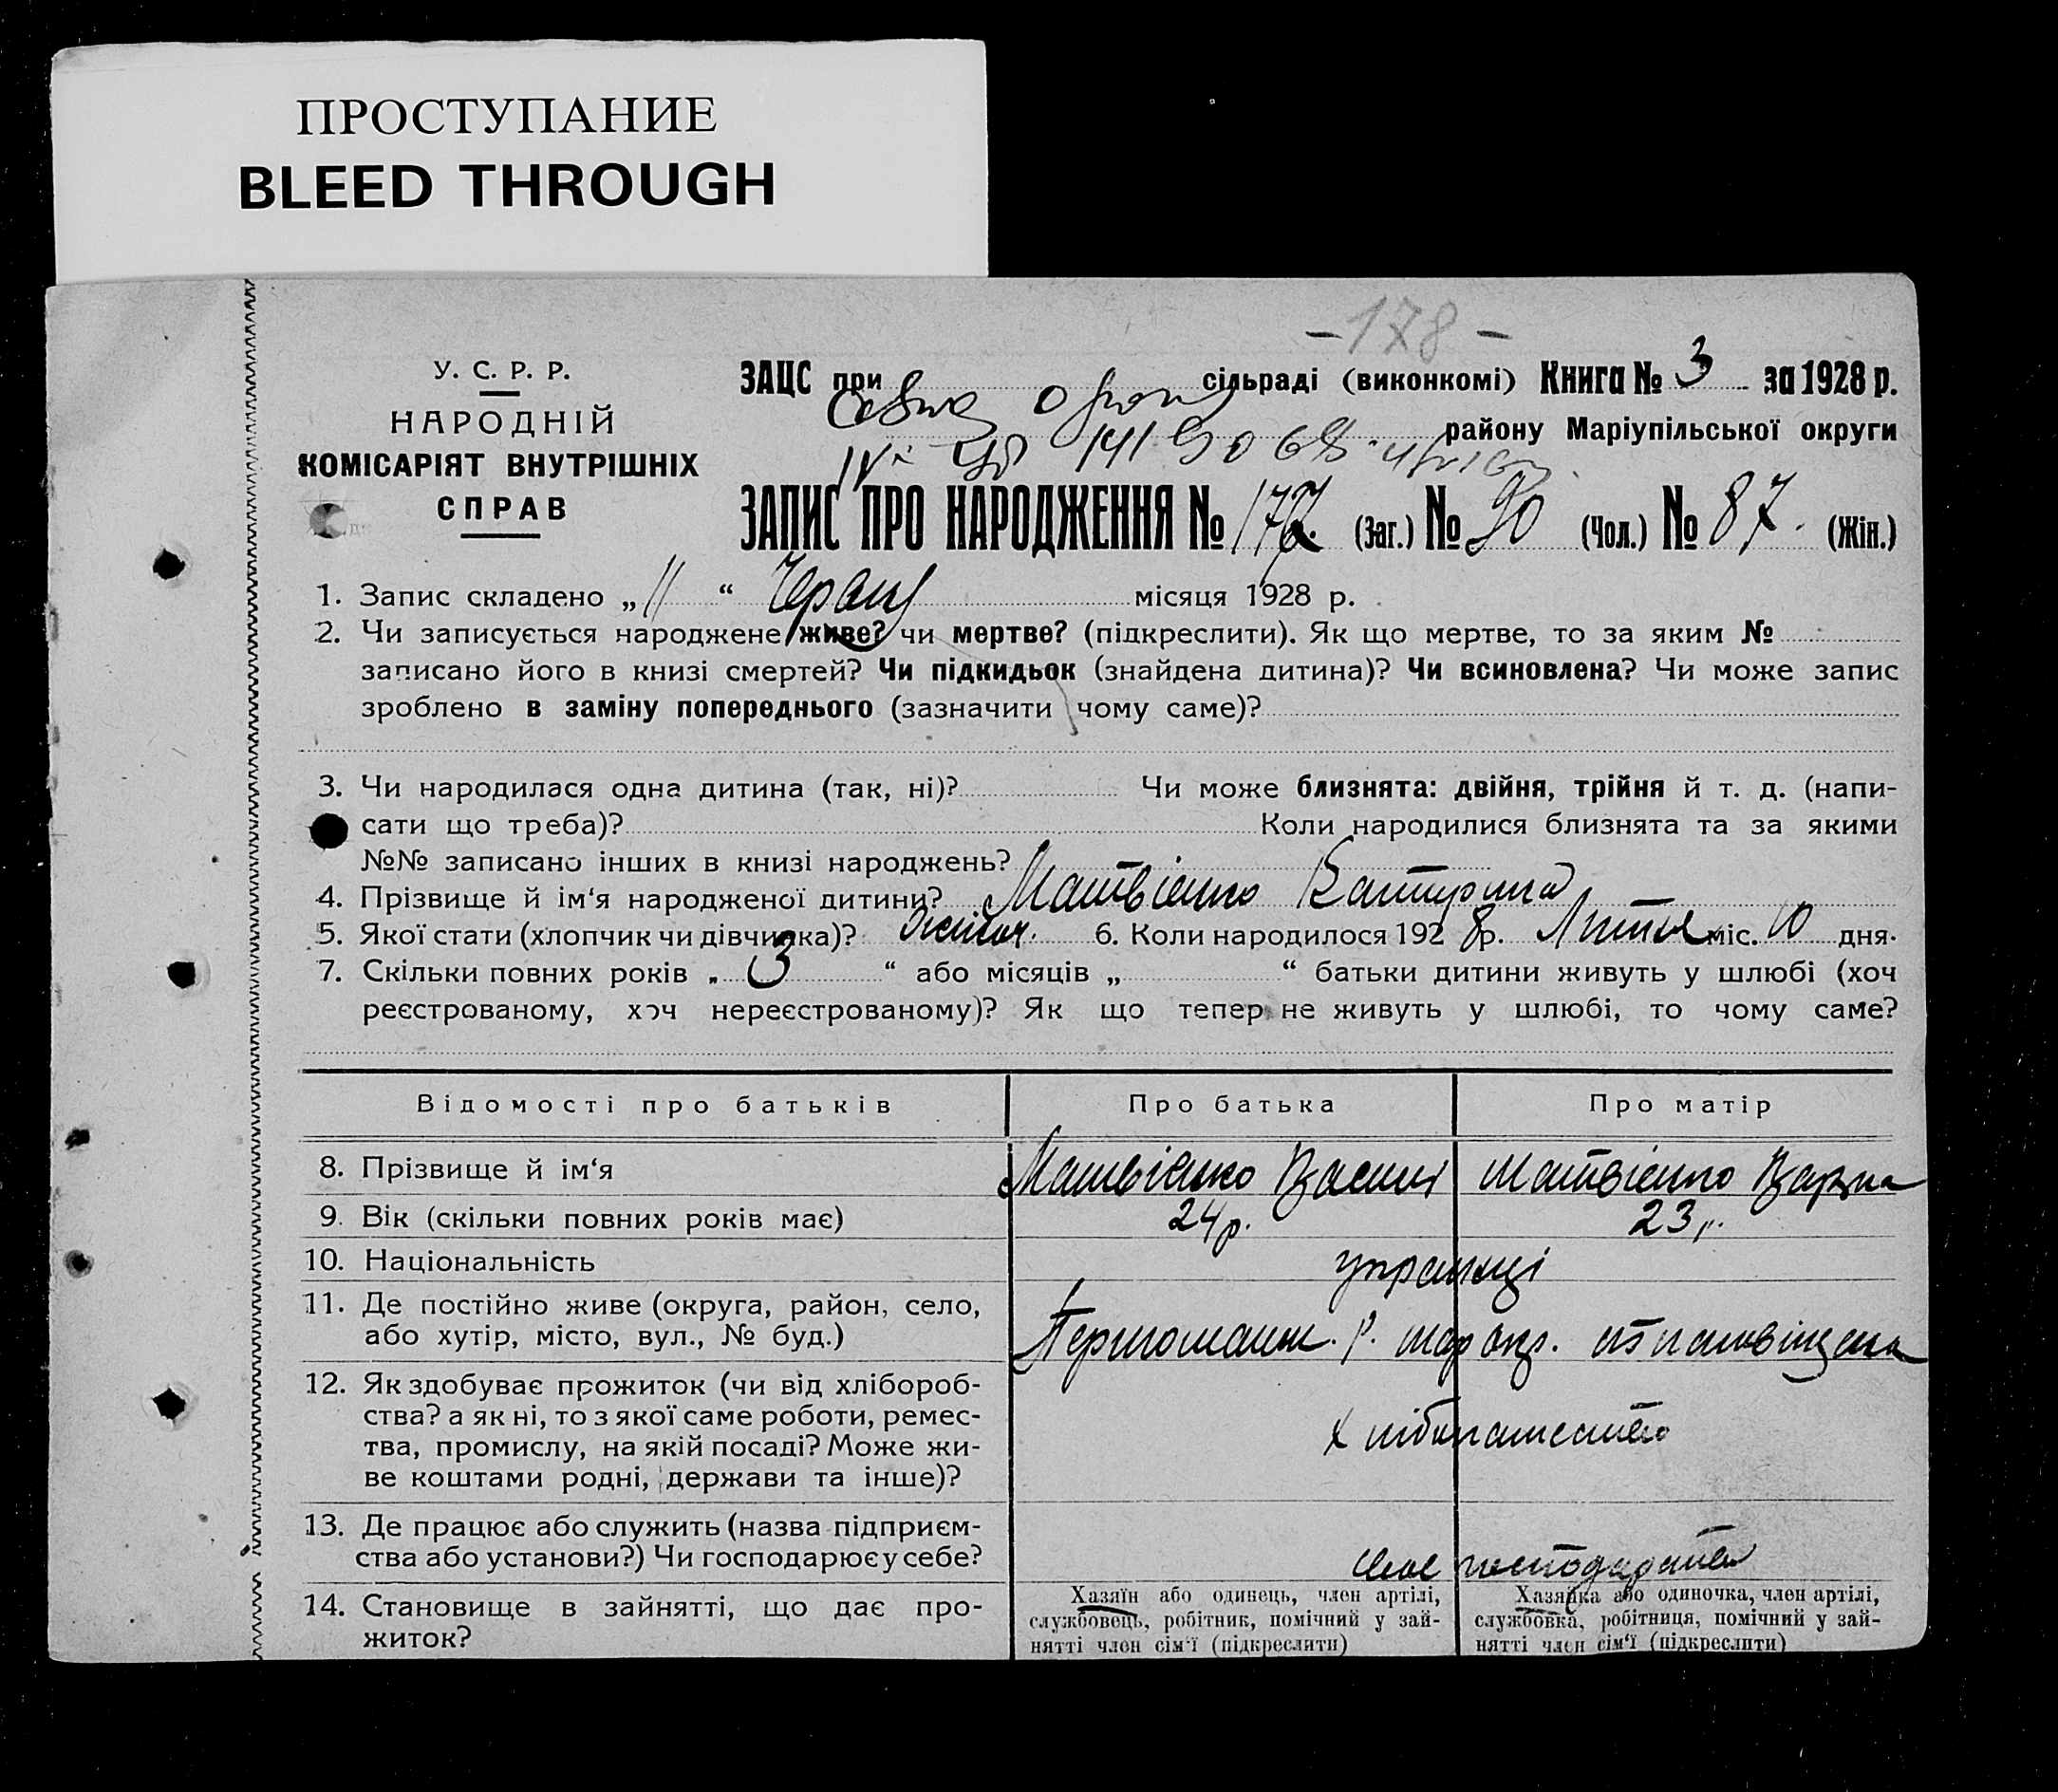 ПРОСТУПАНИЕ
BLEED THROUGH
-178-
У. С. Р. Р.
НАРОДНІЙ
КОМІСАРІЯТ ВНУТРІШНІХ
СПРАВ
ЗАЦС при сільраді (виконкомі) Книга № 3 за 1928 р.
району Маріупільської округи
ЗАПИС ПРО НАРОДЖЕННЯ № 177 (Заг.) № 90 (Чол.) № 87. (Жін.)
1. Запис складено „ 11 “ місяця 1928 р.
2. Чи записується народжене живе? чи мертве? (підкреслити). Як що мертве, то за яким №
записано його в книзі смертей? Чи підкидьок (знайдена дитина)? Чи всиновлена? Чи може запис
зроблено в заміну попереднього (зазначити чому саме)?
3. Чи народилася одна дитина (так, ні)? Чи може близнята: двійня, трійня й т. д. (напи-
сати що треба)? Коли народилися близнята та за якими
№№ записано інших в книзі народжень?
4. Прізвище й ім‘я народженої дитини? Матвієнко Катерина
5. Якої стати (хлопчик чи дівчинка)? 6. Коли народилося 192 8 р. Липня міс. 10 дня.
7. Скільки повних років „ 3 “ або місяців „ “ батьки дитини живуть у шлюбі (хоч
реєстрованому, хоч нереєстрованому)? Як що тепер не живуть у шлюбі, то чому саме?
Відомості про батьків Про батька Про матір
8. Прізвище й ім‘я Матвієнко Василь Матвієнко Варка
9. Вік (скільки повних років має) 24 р. 23 р.
10. Національність українці
11. Де постійно живе (округа, район, село,
або хутір, місто, вул., № буд.) р. мар окр.
12. Як здобуває прожиток (чи від хлібороб-
ства? а як ні, то з якої саме роботи, ремес-
тва, промислу, на якій посаді? Може жи-
ве коштами родні, держави та інше)?
13. Де працює або служить (назва підприєм-
ства або установи?) Чи господарює у себе?
14. Становище в зайнятті, що дає про-
житок?
Хазяїн або одинець, член артілі,
службовець, робітник, помічний у зай-
нятті член сім‘ї (підкреслити)
Хазяйка або одиночка, член артілі,
службовка, робітниця, помічний у зай-
нятті член сім‘ї (підкреслити)